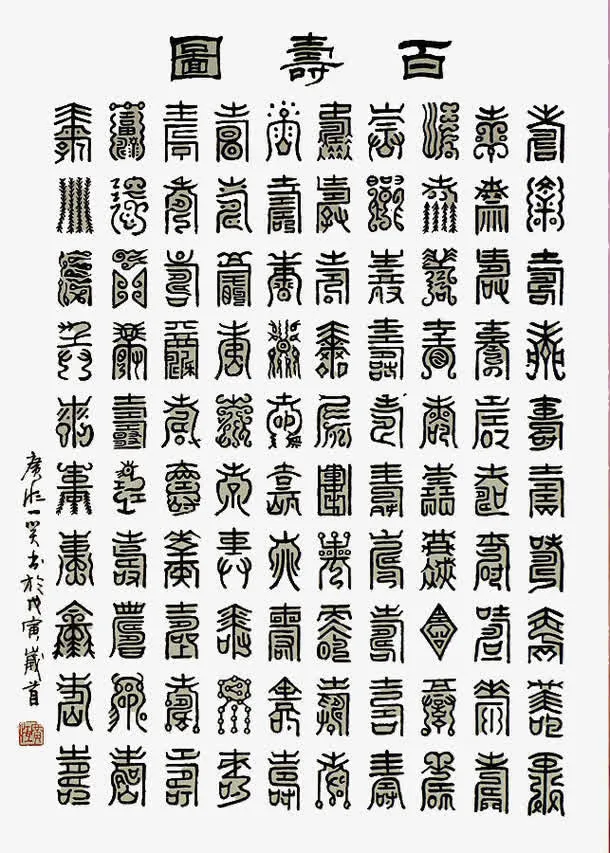 百壽圖
壽壽壽壽壽壽壽壽壽壽
壽壽壽壽壽壽壽壽壽壽
壽壽壽壽壽壽壽壽壽壽
壽壽壽壽壽壽壽壽壽壽
壽壽壽壽壽壽壽壽壽壽
壽壽壽壽壽壽壽壽壽壽
壽壽壽壽壽壽壽壽壽壽
壽壽壽壽壽壽壽壽壽壽
壽壽壽壽壽壽壽壽壽壽
壽壽壽壽壽壽壽壽壽壽
一笑书於戊寅嵗首